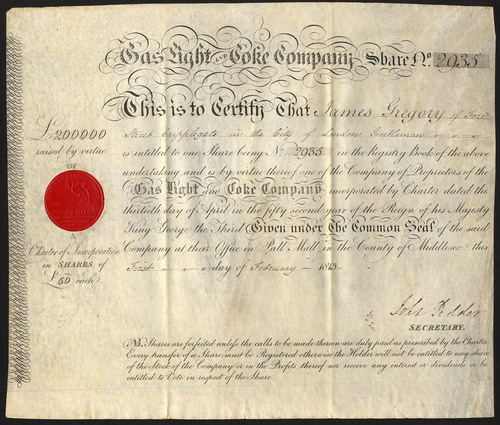 Gas Light AND Coke Company Share No. 2935
This is to Certify That James Gregory of Fore
Street Cripplegate in the City of London Gentleman
is intitled to one Share being No. 2935 in the Registry Book of the above
undertaking and is by virtue thereof one of the Company of Proprietors of the
Gas Light and Coke Company incorporated by Charter dated the
thirtieth day of April in the fifty second year of the Reign of his Majesty
King George the Third Given under the Common Seal of the said
Company at their Office in Pall Mall in the County of Middlesex this
First day of February 1813
£200000
raised by virtue
OF
A
Charter of Incorporation
in SHARES of
£50 each
John Pedder
SECRETARY.
NB. Shares are forfeited unless the calls to be made thereon are duly paid as prescribed by the Charter
Every transfer of a Share must be Registered otherwise the Holder will not be intitled to any share
of the Stock of the Company or in the Profits thereof nor receive any interest or dividends or be
intitled to Vote in respect of the Share.